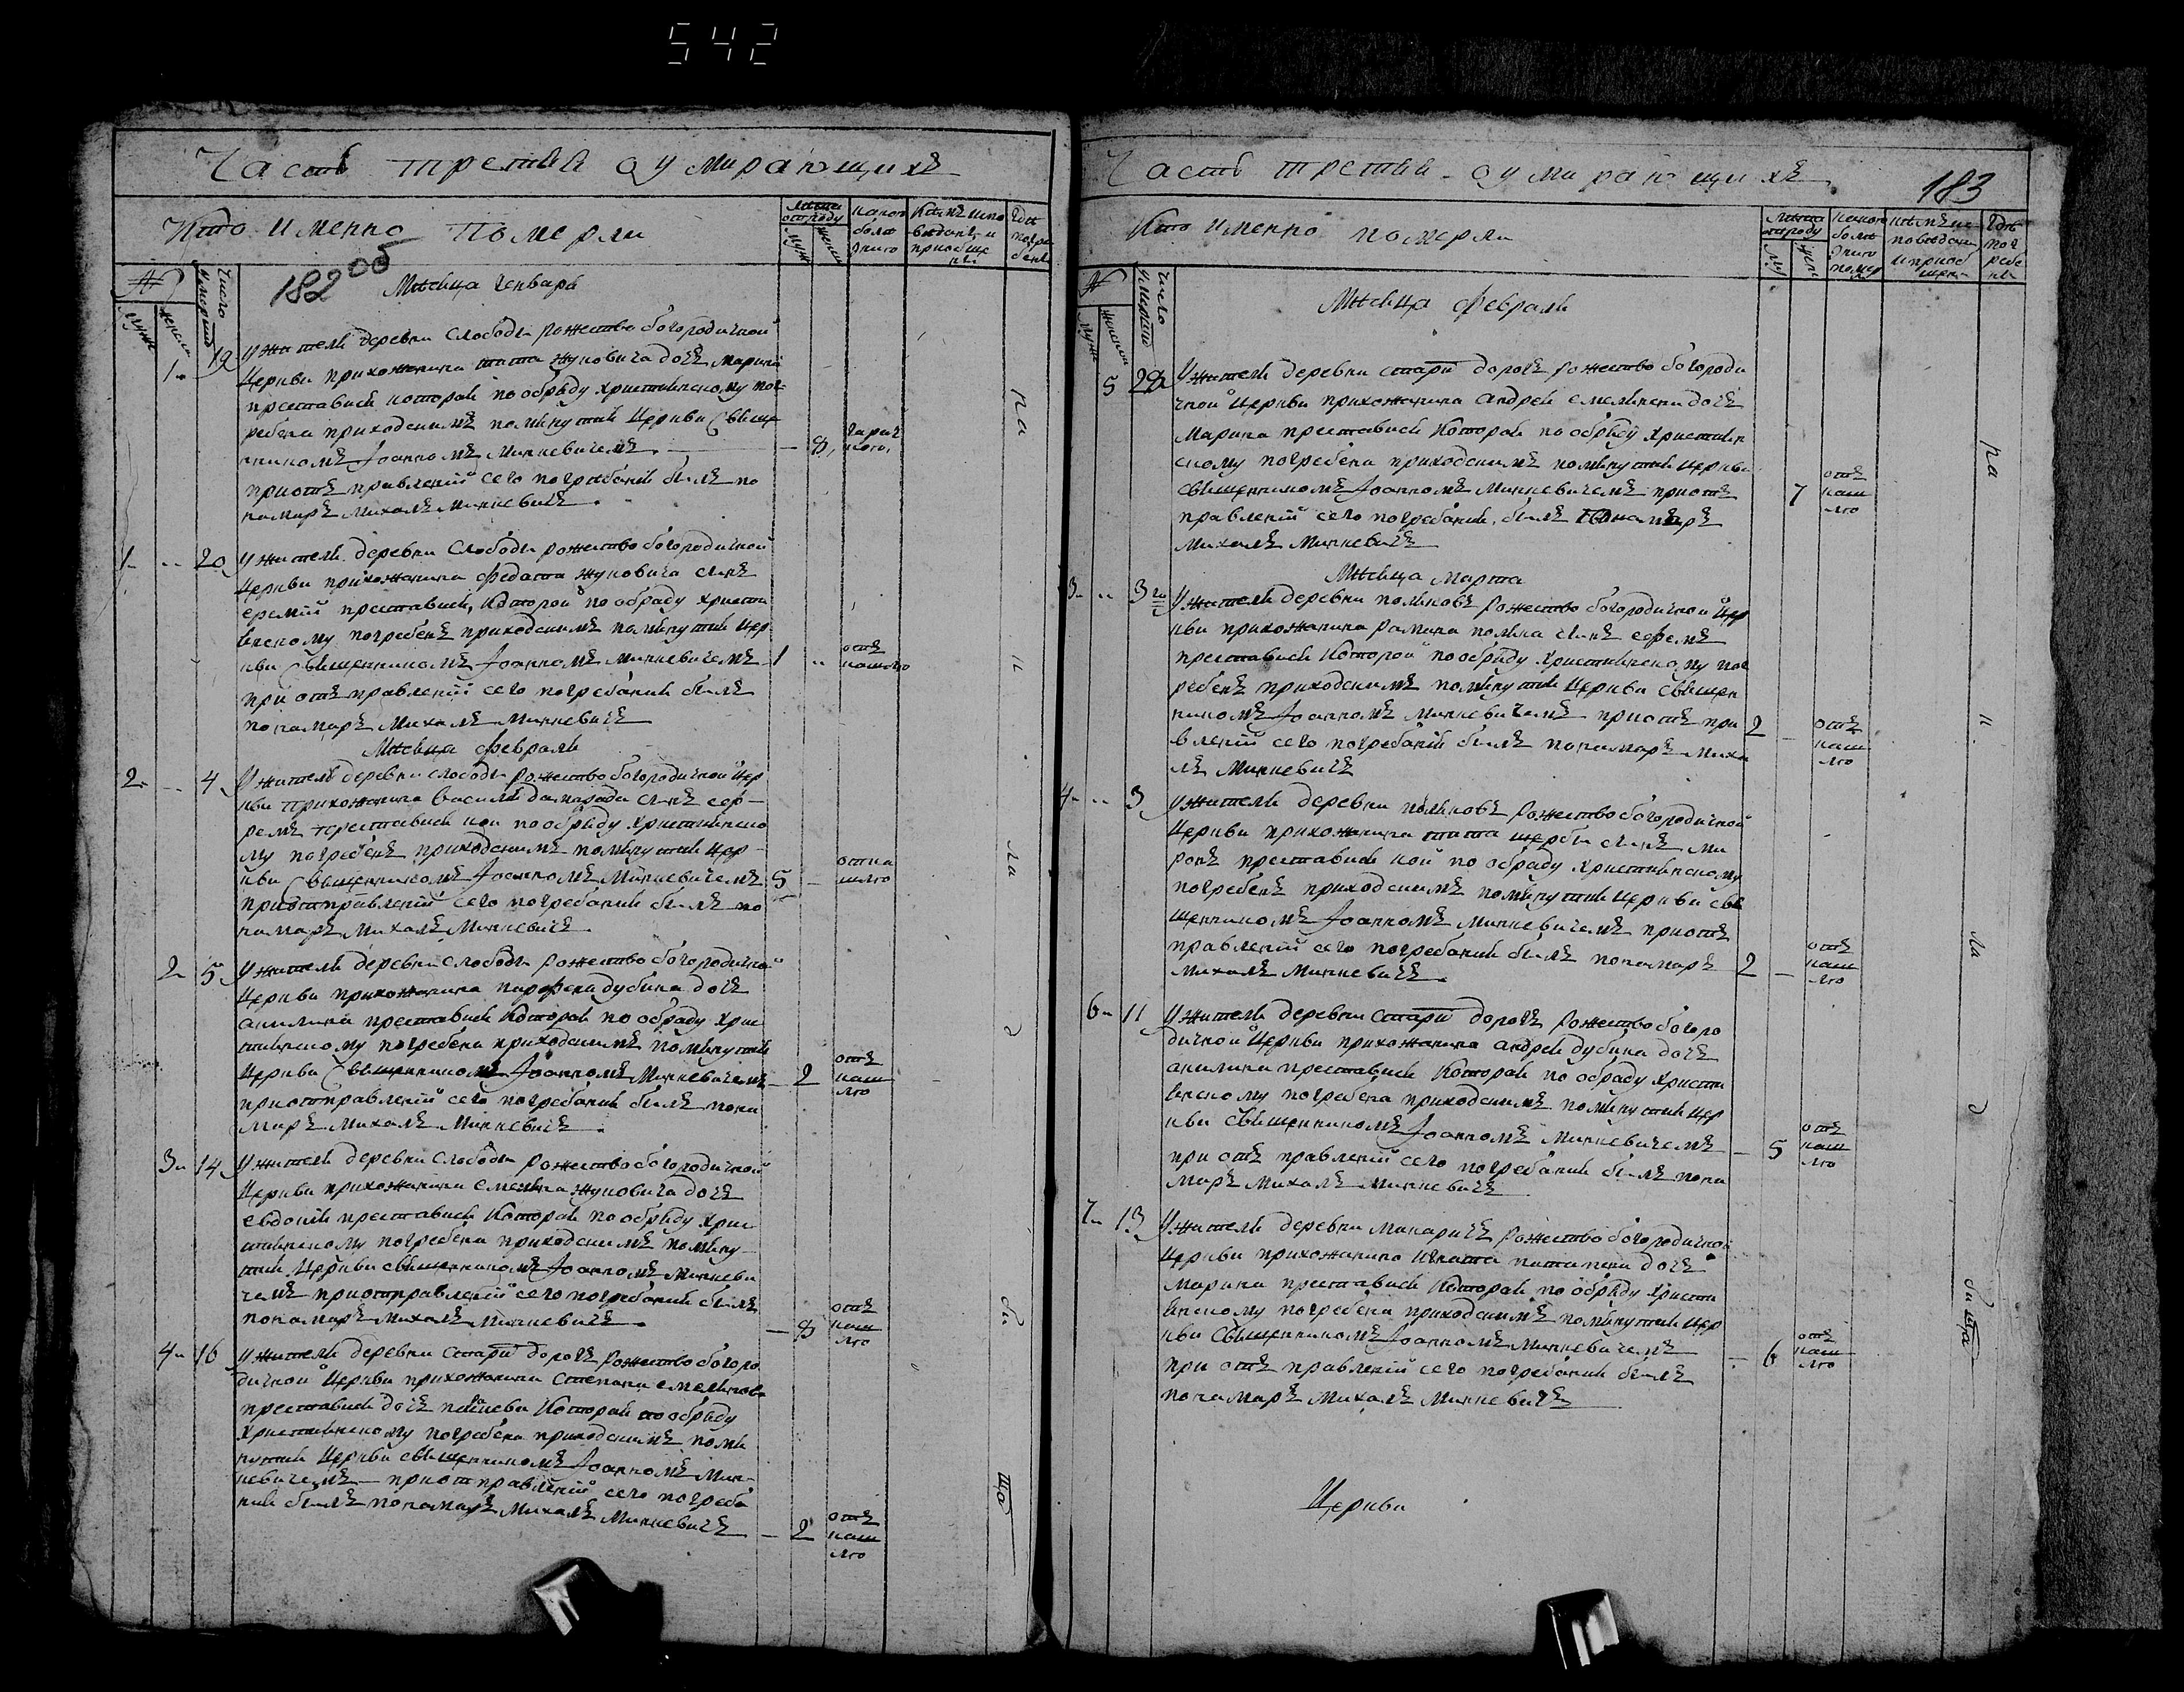 542
Часть третия оумирающихъ
Кто именно померли
лета
отроду
муж
женск
какою
болез
нию
Кемъ испо
виданъ и
приобще
нъ
Где
погре
бенъ
№
мужс
женск
Число
умерши
182 об
Месяца Генваря
1 19 У жителя деревни Слободы рожество богородичной
Церкви прихожанина тита Жуковича дочь марина
преставися которая по обряду християнскому пог
ребена приходскимъ помянутыя Церкви Свяще
нникомъ Іоанномъ Минкевичемъ — 8 гарач
кою
приотъ правлении сего погребания былъ по
намарь михалъ минкевичъ
1 20 У жителя деревни Слободы рожество богородичной
Церкви прихожанина федата Жуковича сынъ
еремий преставися, которой по обряду христи
янскому погребенъ приходскимъ помянутыя Цер
кви Священникомъ Іоанномъ минкевичемъ 1 отъ
кашлю
при отъ правлении сего погребания былъ
понамарь михалъ минкевичъ
Месяца февраля
2 4 У жителя деревни слободы рожество богородичной цер
кви прихожанина василия сынъ еф
ремъ преставися кои по обряду християнско
му погребенъ приходскимъ помянутыя цер
кви Священникомъ Іоанномъ Минкевичемъ 5 — отка
шлю
приотправлении сего погребания былъ по
намарь михалъ минкевичъ
2 5 У жителя деревни слободы рожество богородичной
Церкви прихожанина парфена дубина дочь
акилина преставися которая по обряду хрис
тиянскому погребена приходскимъ помянутыя
Церкви Священникомъ Іоанномъ Минкевичемъ — 2 отъ
каш
лю
приотправлении сего погребания былъ пона
марь михалъ минкевичъ
3 14 У жителя деревни слободы рожество богородичной
Церкви прихожанина семена жуковича дочь
евдокия преставися которая по обряду хрис
тиянскому погребена приходскимъ помяну
тыя Церкви священникомъ Іоанномъ минкеви
чемъ приотправлении сего погребания былъ
понамарь михалъ минкевичъ — 8 отъ
каш
лю
4 16 У жителя деревни Стари дорогъ рожество богоро
дичной Церкви прихожанина Степана емельянова
преставися дочь которая по обряду
християнскому погребена приходскимъ помя
нутыя Церкви священникомъ Іоанномъ мин
кевичемъ приотправлении сего погреба
ния былъ понамарь михалъ минкевичъ — 2 отъ
каш
лю
на
к
ла
д
би
ща
Часть третия оумирающихъ
183
Кто именно померли
лета
отроду
му
жен
какою
болез
нию
помер
кемъ ис
поведан
и приоб
щен
Где
пог
ребе
нъ
№
мужс
женскои
Число
умерши
Месяца февраля
5 29 У жителя деревни стари дорогъ рожество богороди
чной Церкви прихожанина андрея емельянена дочь
марина преставися которая по обряду християн
скому погребена приходскимъ помянутыя церкви
священникомъ Іоанномъ минкевичемъ приотъ — 7 отъ
каш
лю
правлении сего погребания былъ понамарь
михалъ минкевичъ
Месяца марта
3 3го У жителя деревни поликовъ рожество богородичной Цер
кви прихожанина рамана сынъ ефемъ
преставися которой по обряду християнскому пог
ребенъ приходскимъ помянутыя Церкви священ
никомъ Іоанномъ минкевичемъ приотъ пра 2 — отъ
каш
лю
влении сего погребания былъ понамарь миха
лъ минкевичъ
4 3 У жителя деревни поликовъ рожество богородичной
Церкви прихожанина тита щербы сынъ ми
ронъ преставися кой по обряду християнскому
погребенъ приходскимъ помянутыя церкви свя
щенникомъ Іоанномъ минкевичемъ приотъ
правлении сего погребания былъ понамарь 2 — отъ
каш
лю
михалъ минкевичъ
6 11 У жителя деревни стари дорогъ рожество богоро
дичной Церкви прихожанина андрея дубина дочь
акилина преставися которая по обряду христи
янскому погребена приходскимъ помянутыя цер
кви священникомъ Іоанномъ минкевичемъ — 5 отъ
каш
лю
при отъ правлении сего погребания былъ пона
марь михалъ минкевичъ
7 13 У жителя деревни макаричъ рожество богородичной
Церкви прихожанина игната дочь
марина преставися которая по обряду христи
янскому погребена приходскимъ помянутыя цер
кви священникомъ Іоанномъ минкевичемъ — 6 отъ
каш
лю
при отъ правлении сего погребания былъ
понамарь михалъ минкевичъ
Церкви
на
к
ла
д
бища